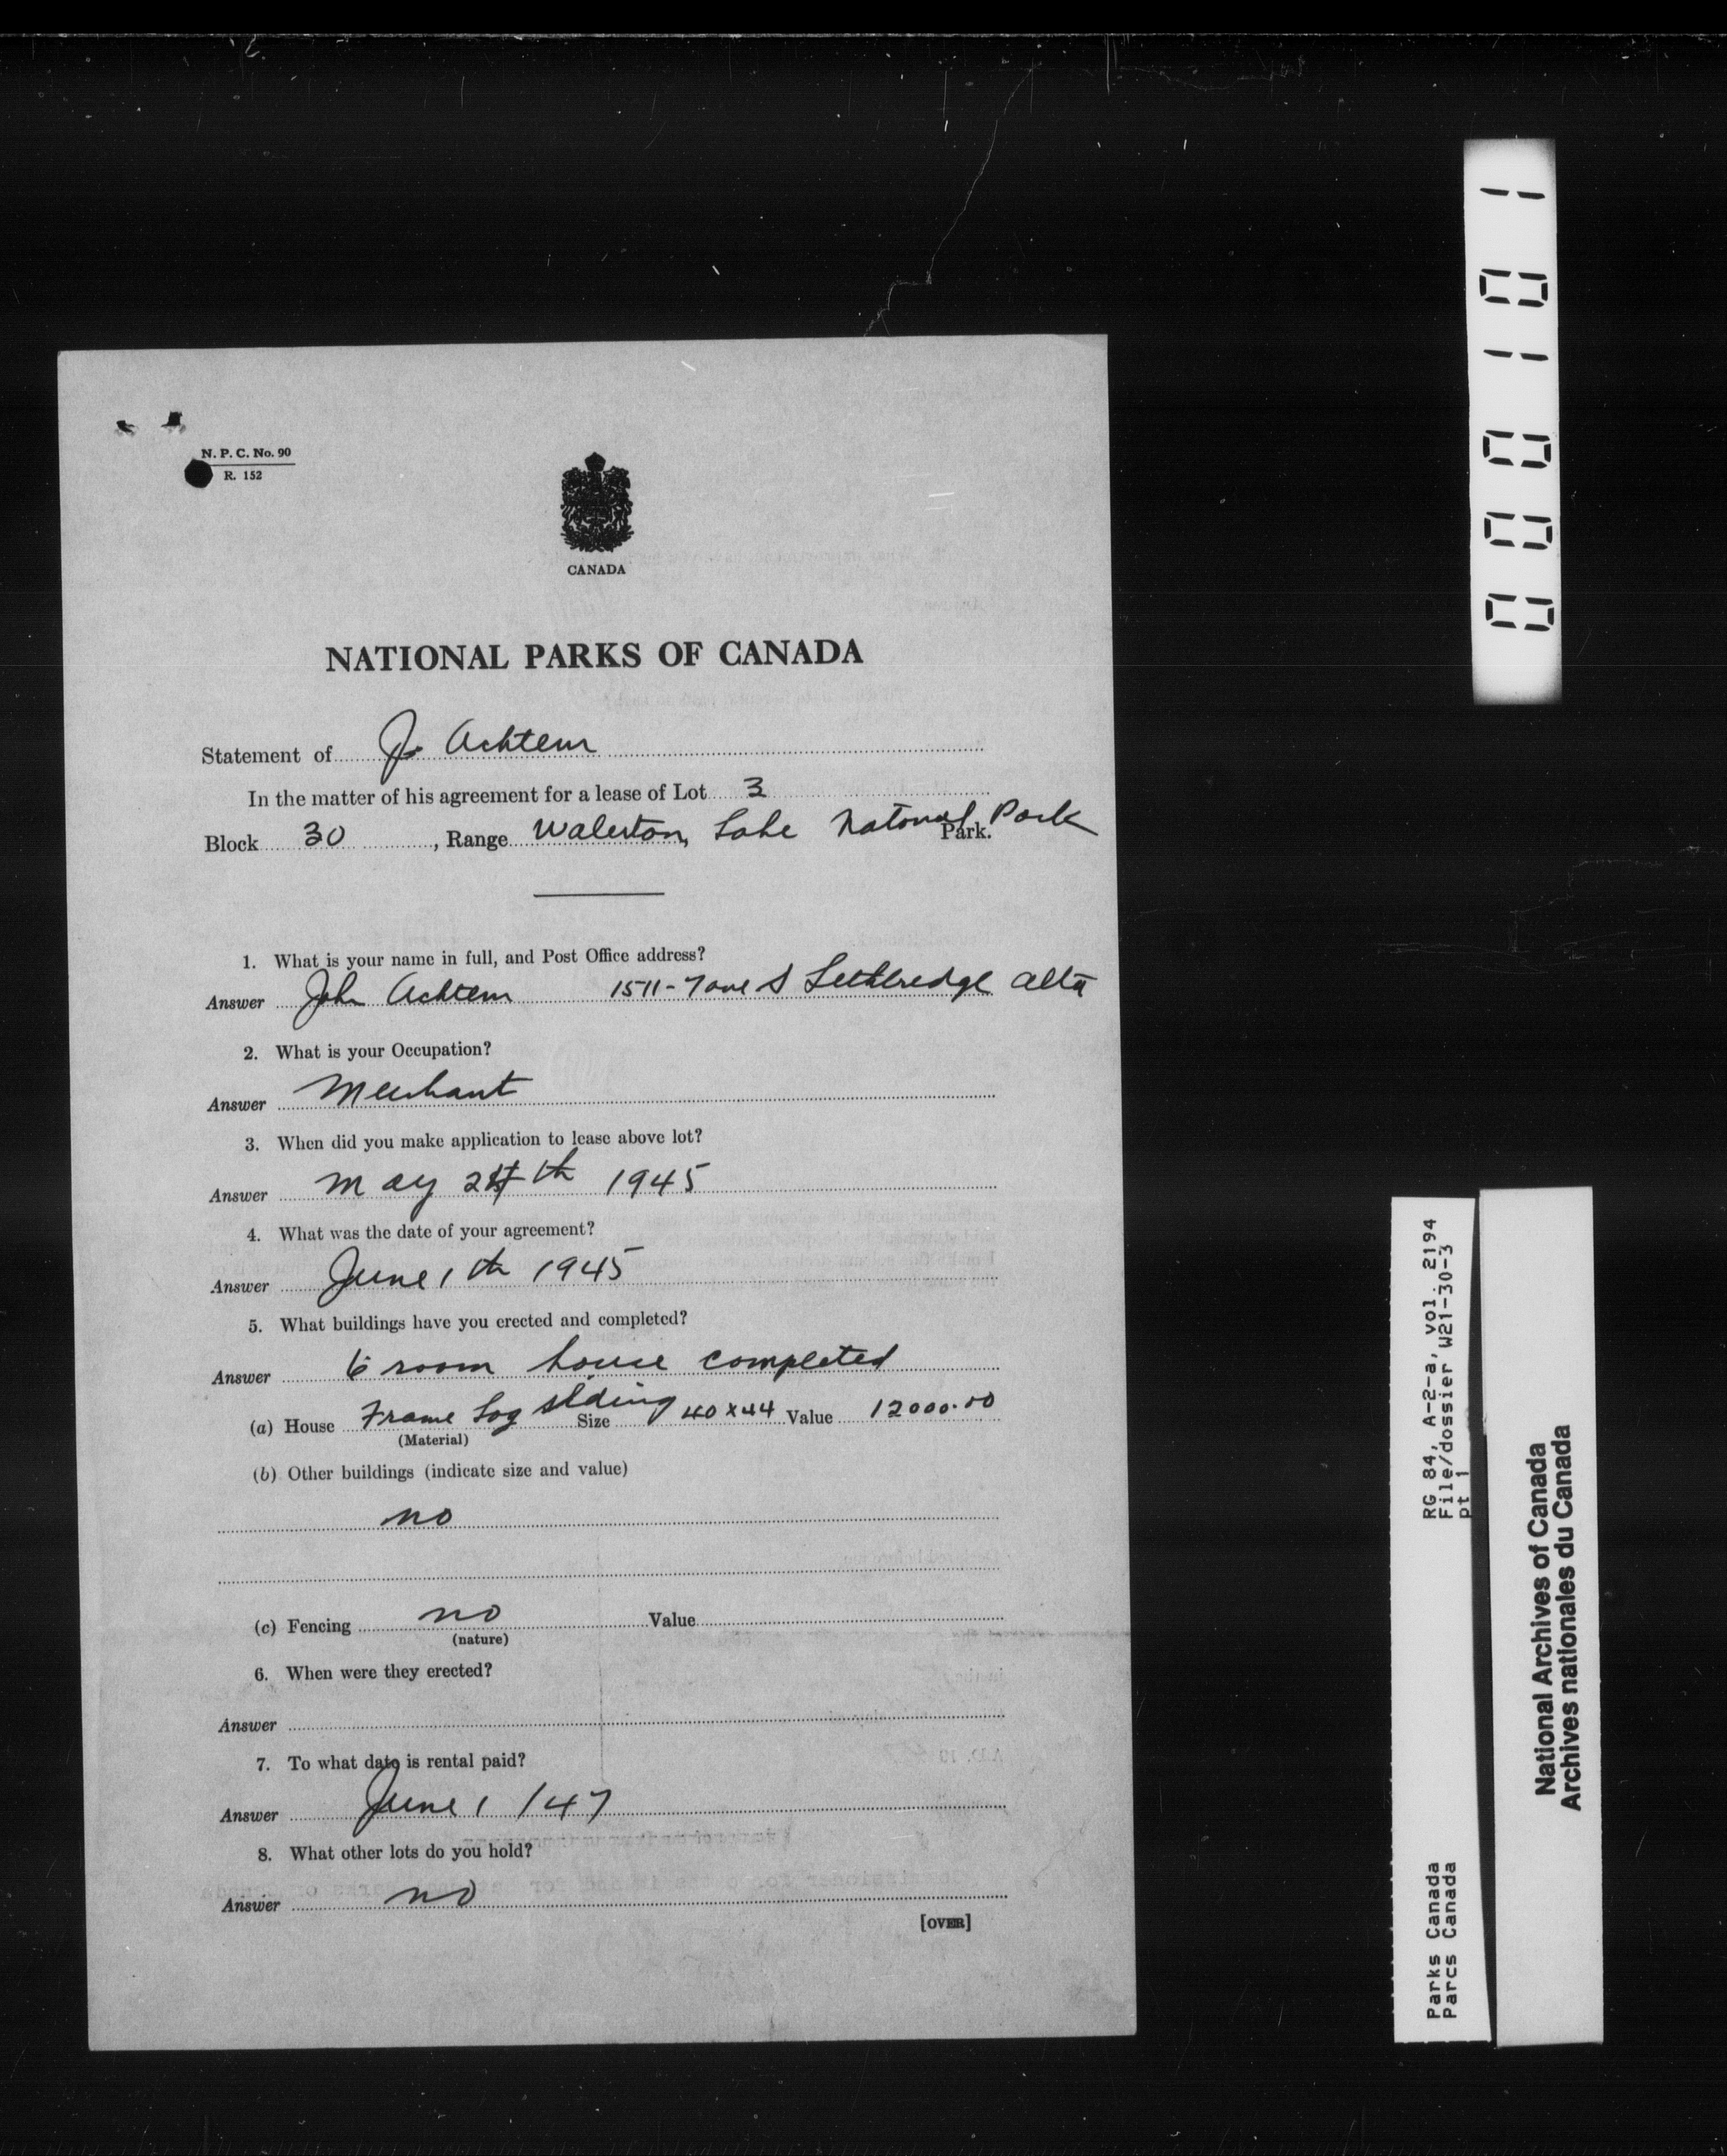 N. P. C. No. 90
R. 152
CANADA
NATIONAL PARKS OF CANADA
Statement of J. Achtem
In the matter of his agreement for a lease of Lot 3
Block 30, Range Walerton, Lake National Park Park.
1. What is your name in full, and Post Office address?
Answer John Achtem 1511-7 ave S Lethbredge Alta
2. What is your Occupation?
Answer Merchant
3. When did you make application to lease above lot?
Answer May th 1945
4. What was the date of your agreement?
Answer June 1th 1945
5. What buildings have you erected and completed?
Answer 6 room house completed
(a) House Frame Log siding Size 40 x 44 Value 12000.00
(Material)
(b) Other buildings (indicate size and value)
no
(c) Fencing no Value
(nature)
6. When were they erected?
Answer
7. To what date is rental paid?
Answer June 1 /47
8. What other lots do you hold?
Answer no
[OVER]
000101
RG 84, A-2-a, vol. 2194
File/dossier W21-30-3
pt 1
Parks Canada
Parcs Canada
National Archives of Canada
Archives nationales du Canada